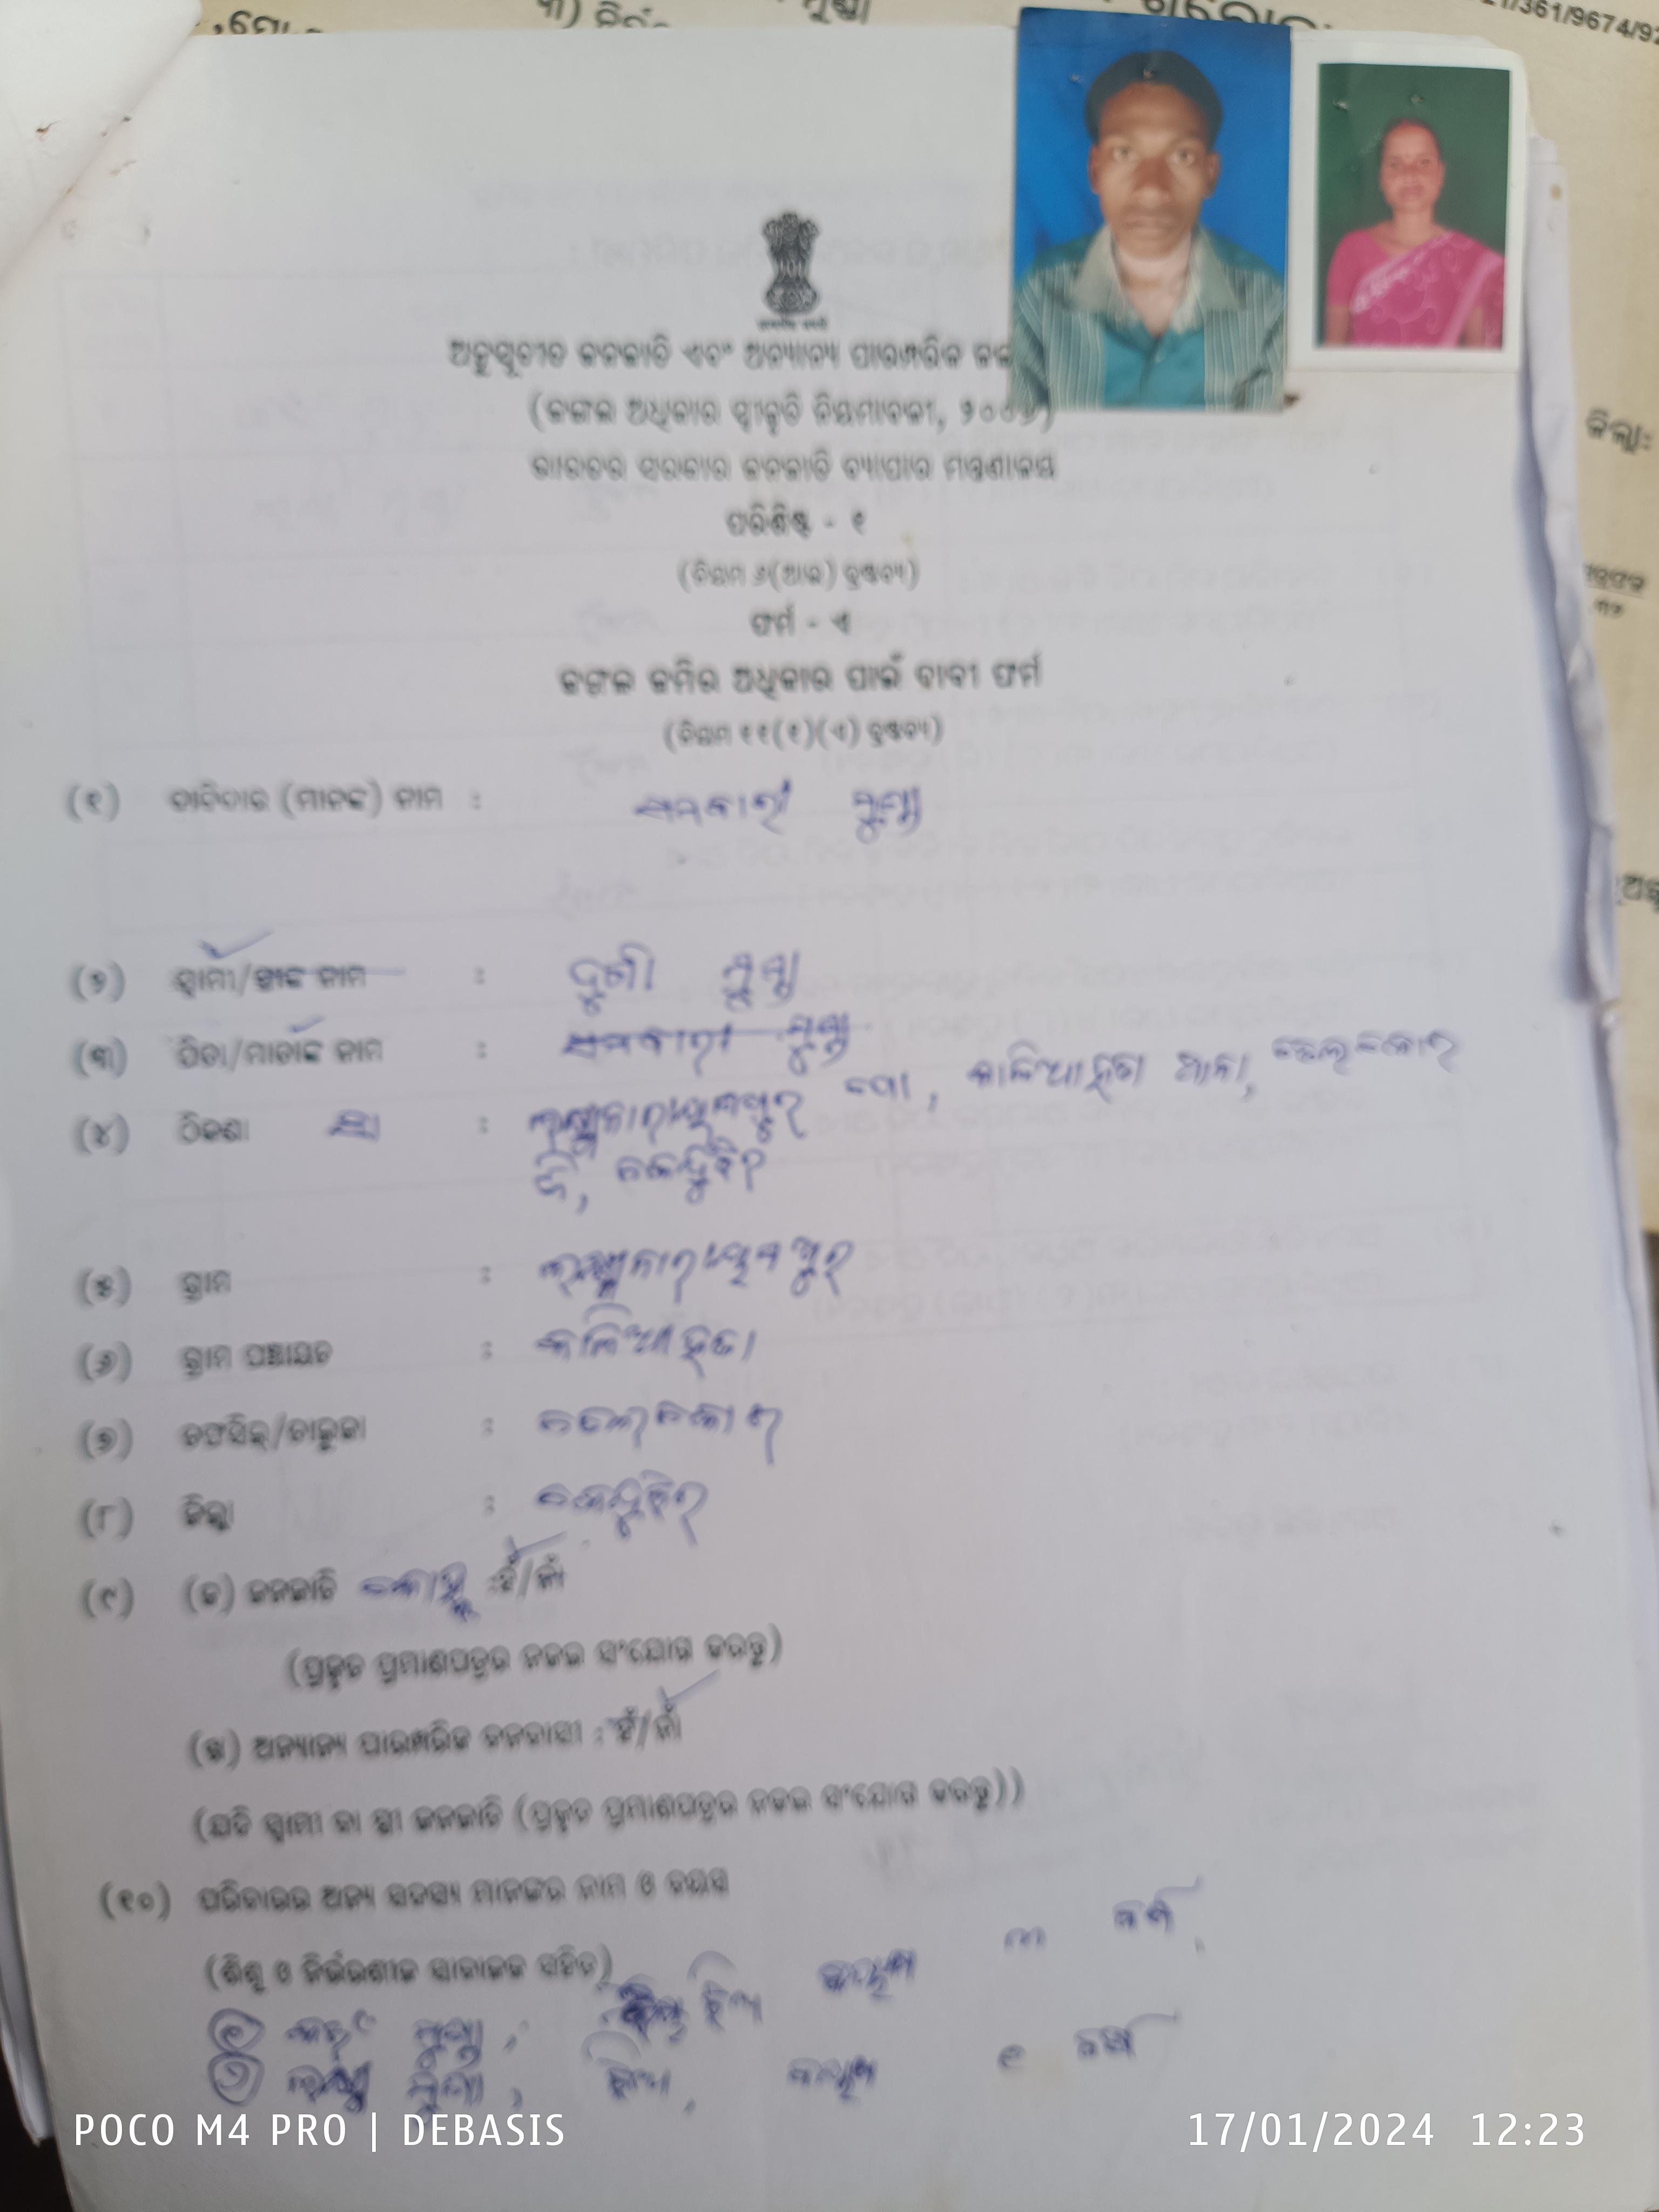 21/361/9674/92
ଜିଲ୍ଲା:
ଅନୁସୂଚୀତ ଜନଜାତି ଏବଂ ଅନ୍ୟାନ୍ୟ ପାରମ୍ପରିକ
(ଜଙ୍ଗଲ ଅଧିକାର ସ୍ୱୀକୃତି ନିୟମାବଳୀ, ୨୦୦୭)
ଭାରତର ସରକାର ଜନଜାତି ବ୍ୟାପାର ମନ୍ତ୍ରଣାଳୟ
ପରିଶିଷ୍ଟ - ୧
(ନିୟମ ୬(ଆଇ) ଦ୍ରଷ୍ଟବ୍ୟ)
ଫର୍ମ - ଏ
ଜଙ୍ଗଲ ଜମିର ଅଧିକାର ପାଇଁ ଦାବୀ ଫର୍ମ
(ନିୟମ ୧୧(୧)(ଏ) ଦ୍ରଷ୍ଟବ୍ୟ)
(୧) ଦାବିଦାର (ମାନଙ୍କ) ନାମ : ମୁଣ୍ଡା
(୨) ସ୍ୱାମୀ/ସ୍ତ୍ରୀଙ୍କ ନାମ : ଦୁର୍ଗା ମୁଣ୍ଡା
(୩) ପିତା/ମାତାଙ୍କ ନାମ : ମୁଣ୍ଡା
(୪) ଠିକଣା : ଲକ୍ଷ୍ମୀନାରାୟଣପୁର ପୋ, କାଳିଆହତା ଥାନା, ତେଲକୋଇ
ଜି, କେନ୍ଦୁଝର
(୫) ଗ୍ରାମ : ଲକ୍ଷ୍ମୀନାରାୟଣପୁର
(୬) ଗ୍ରାମ ପଞ୍ଚାୟତ : କାଳିଆହତା
(୭) ତହସିଲ୍/ତାଲୁକା : ତେଲକୋଇ
(୮) ଜିଲ୍ଲା : କେନ୍ଦୁଝର
(୯) (କ) ଜନଜାତି କୋହ୍ଲ :ହଁ/ନାଁ
(ପ୍ରକୃତ ପ୍ରମାଣପତ୍ରର ନକଲ ସଂଯୋଗ କରନ୍ତୁ)
(ଖ) ଅନ୍ୟାନ୍ୟ ପାରମ୍ପରିକ ବନବାସୀ : ହଁ/ନାଁ
(ଯଦି ସ୍ୱାମୀ ବା ସ୍ତ୍ରୀ ଜନଜାତି (ପ୍ରକୃତ ପ୍ରମାଣପତ୍ରର ନକଲ ସଂଯୋଗ କରନ୍ତୁ))
(୧୦) ପରିବାରର ଅନ୍ୟ ସଦସ୍ୟ ମାନଙ୍କର ନାମ ଓ ବୟସ
(ଶିଶୁ ଓ ନିର୍ଭରଶୀଳ ସାବାଳକ ସହିତ)
୧ ମୁଣ୍ଡା, ଝିଅ ବୟସ ୩ ବର୍ଷ
୨ ଲକ୍ଷ୍ମୀ ମୁଣ୍ଡା, ଝିଅ, ବୟସ ୧ ବର୍ଷ
POCO M4 PRO | DEBASIS
17/01/2024 12:23